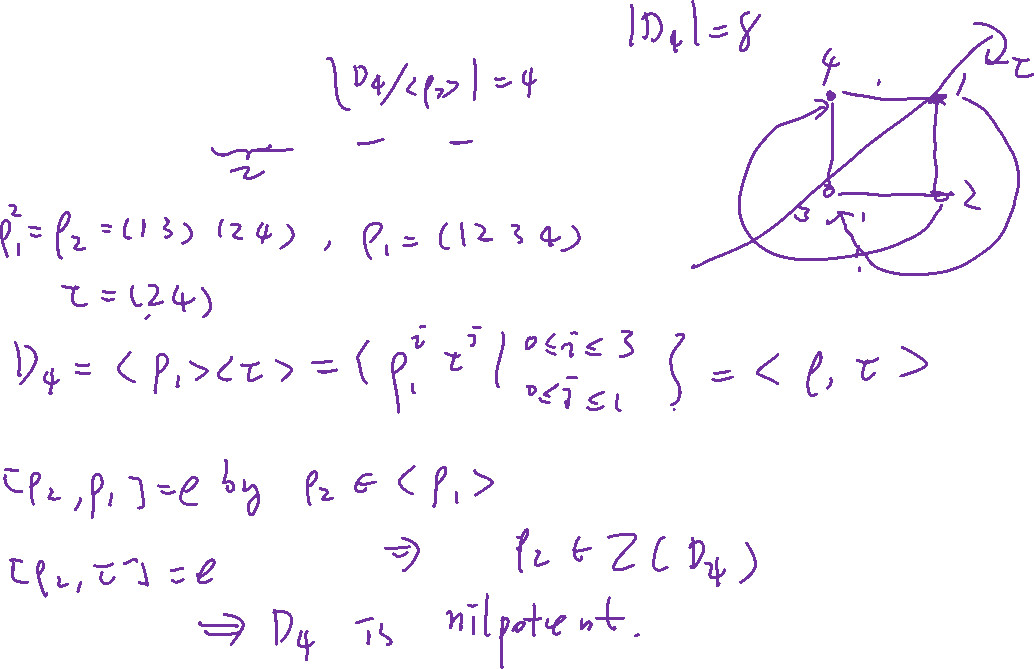 |D₄| = 8
|D₄/<ρ₂>| = 4
2
4 1 τ
3 2
ρ₁² = ρ₂ = (1 3) (2 4) , ρ₁ = (1 2 3 4)
τ = (2 4)
D₄ = <ρ₁><τ> = { ρ₁ⁱ τʲ | 0≤i≤3 0≤j≤1 } = <ρ, τ>
[ρ₂, ρ₁] = e by ρ₂ ∈ <ρ₁>
[ρ₂, τ] = e ⇒ ρ₂ ∈ Z(D₄)
⇒ D₄ is nilpotent.